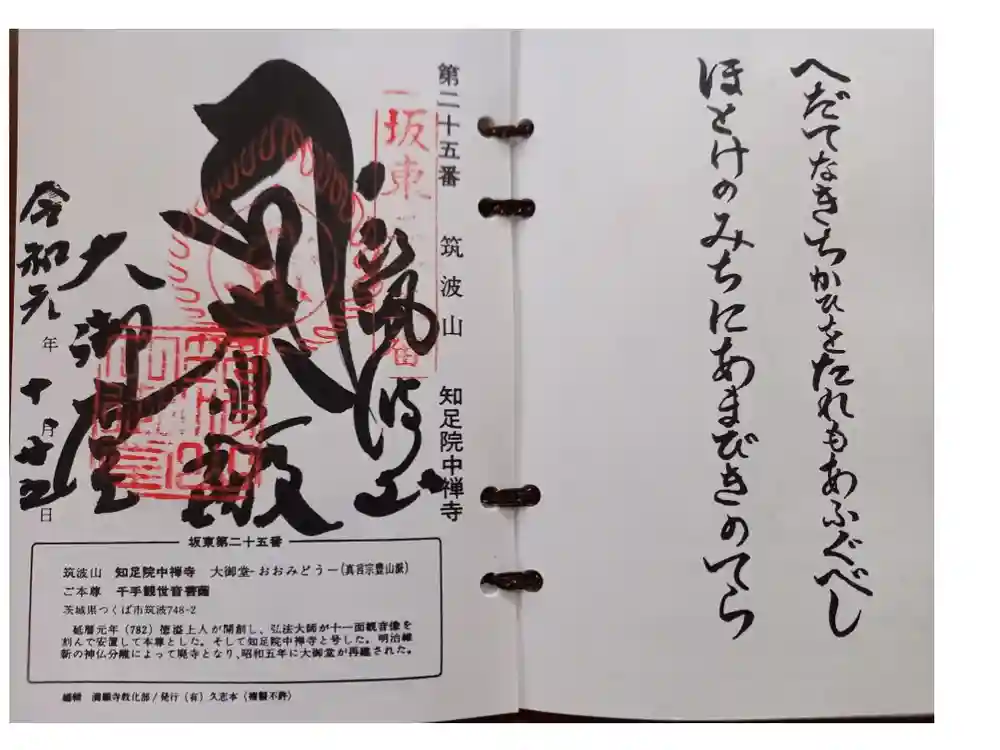 へだてなきちかひをたれもあふぐべし
ほとけのみちにあまびきのてら
第二十五番 筑波山 知足院中禅寺
坂東
筑波山
大御堂
令和元年十月廿五日
坂東第二十五番
筑波山 知足院中禅寺 大御堂-おおみどう-(真言宗豊山派)
ご本尊 千手観世音菩薩
茨城県つくば市筑波748-2
延暦元年(782)徳溢上人が開創し、弘法大師が十一面観音像を
刻んで安置して本尊とした。そして知足院中禅寺と号した。明治維
新の神仏分離によって廃寺となり、昭和五年に大御堂が再建された。
編輯 満願寺教化部/発行(有)久志本(複製不許)